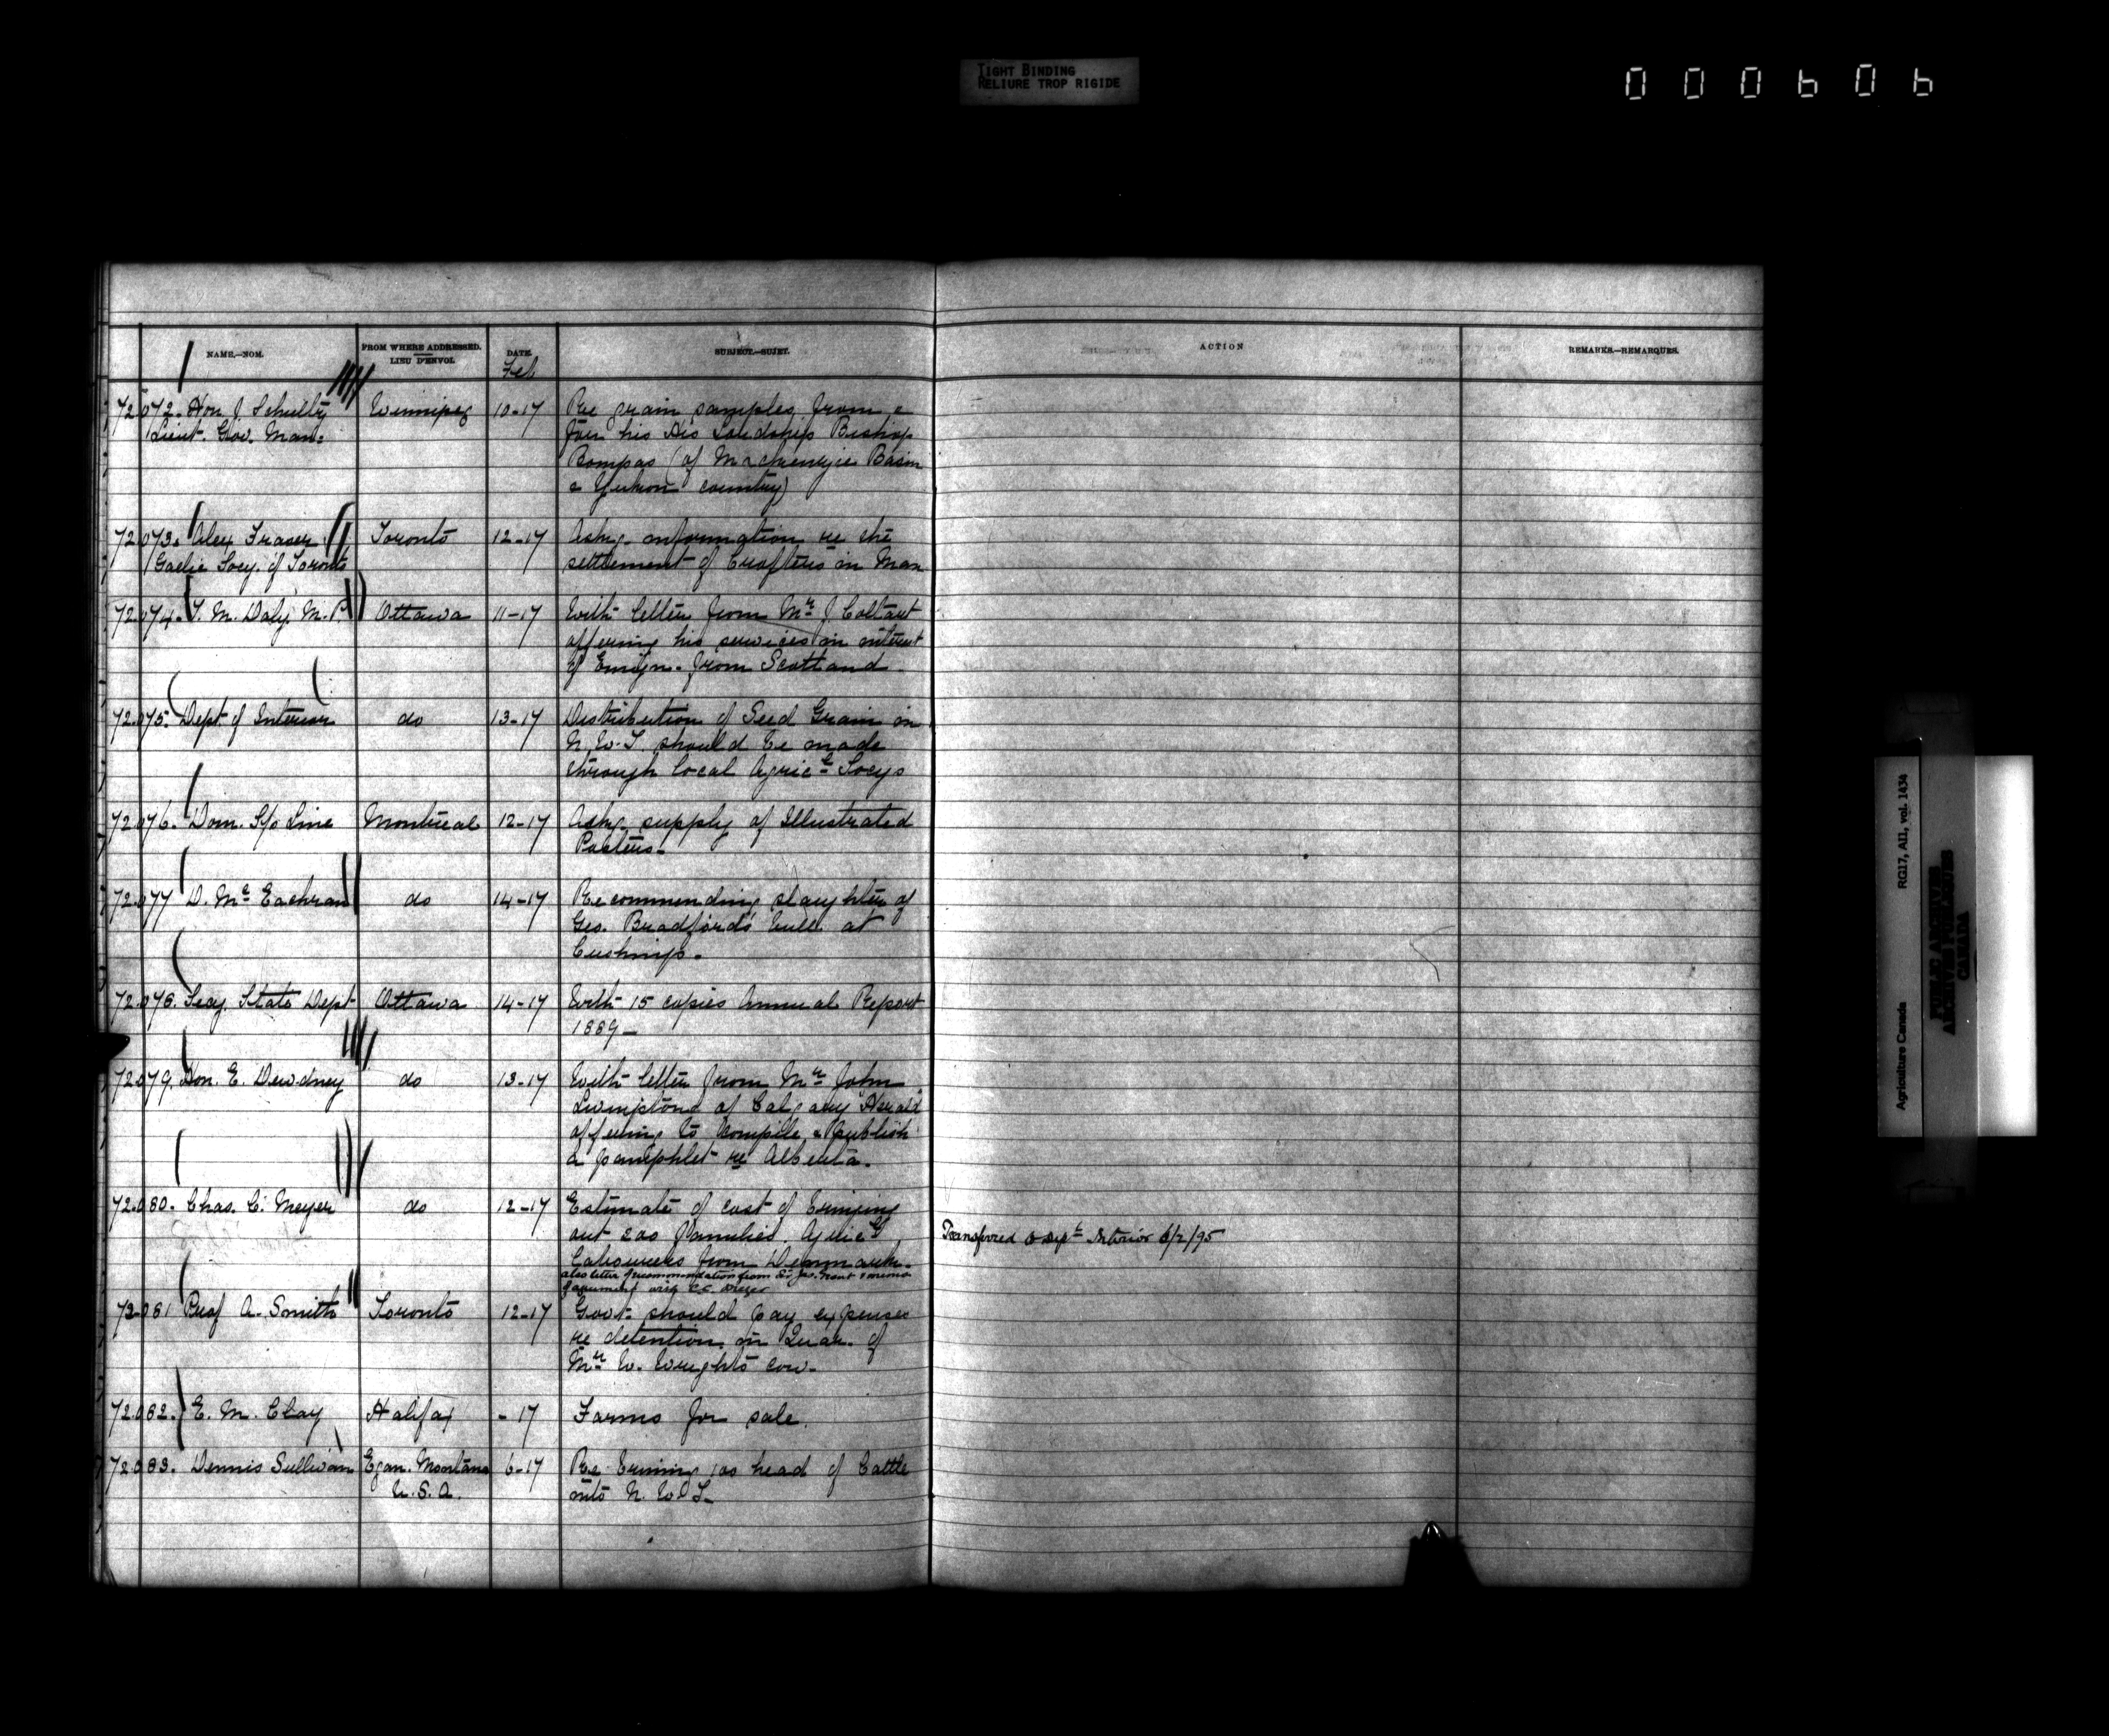 TIGHT BINDING
RELIURE TROP RIGIDE
000606
NAME.—NOM.
FROM WHERE ADDRESSED.
LIEU D'ENVOI.
DATE.
Feb
SUBJECT.—SUJET.
ACTION
REMARKS.—REMARQUES.
72.072. Hon. J. Schultz Winnipeg 10-17 Re grain samples from &
Lieut. Gov. Man: for his His Lordship Bishop
Bompas (of Mackenzie Basin
& Yukon country)
72.073. Alex Fraser Toronto 12-17 Askg. information re the
Gaelic Socy. of Toronto settlement of Crofters in Man
72.074. T. M. Daly, M.P. Ottawa 11-17 With letter from Mr J. Coltart
offering his services in interest
of Emign. from Scotland
72.075. Dept of Interior do 13-17 Distribution of Seed Grain in
N.W.T. should be made
through local Agricl Socys
72.076. Dom. S/s Line Montreal 12-17 Askg. supply of Illustrated
Posters-
72.077 D. Mc Eachran do 14-17 Recommending slaughter of
Geo. Bradford's bull at
Cushings.
72.078. Secy. State Dept Ottawa 14-17 With 15 copies Annual Report
1889-
72.079. Hon. E. Dewdney do 13-17 With letter from Mr John
Livingstone of Calgary Herald
offering to compile & publish
a pamphlet re Alberta.
72.080. Chas. C. Meyer do 12-17 Estimate of cost of bringing
out 200 families. Agricl
Labourers from Denmark.
also letter of recommendation from Sir Jas. Grant & memo
of agreement with C.C. Meyer
Transferred to Dept Interior 6/2/95
72.081 Prof A. Smith Toronto 12-17 Govt. should pay expenses
re detention in Quar. of
Mr W. Wright's cow-
72.082. E. M. Clay Halifax - 17 Farms for sale.
72.083. Dennis Sullivan Egan. Montana 6-17 Re bringing 100 head of Cattle
U.S.A. into N.W.T-
Agriculture Canada RG17, AII, vol. 1434
PUBLIC ARCHIVES
ARCHIVES PUBLIQUES
CANADA